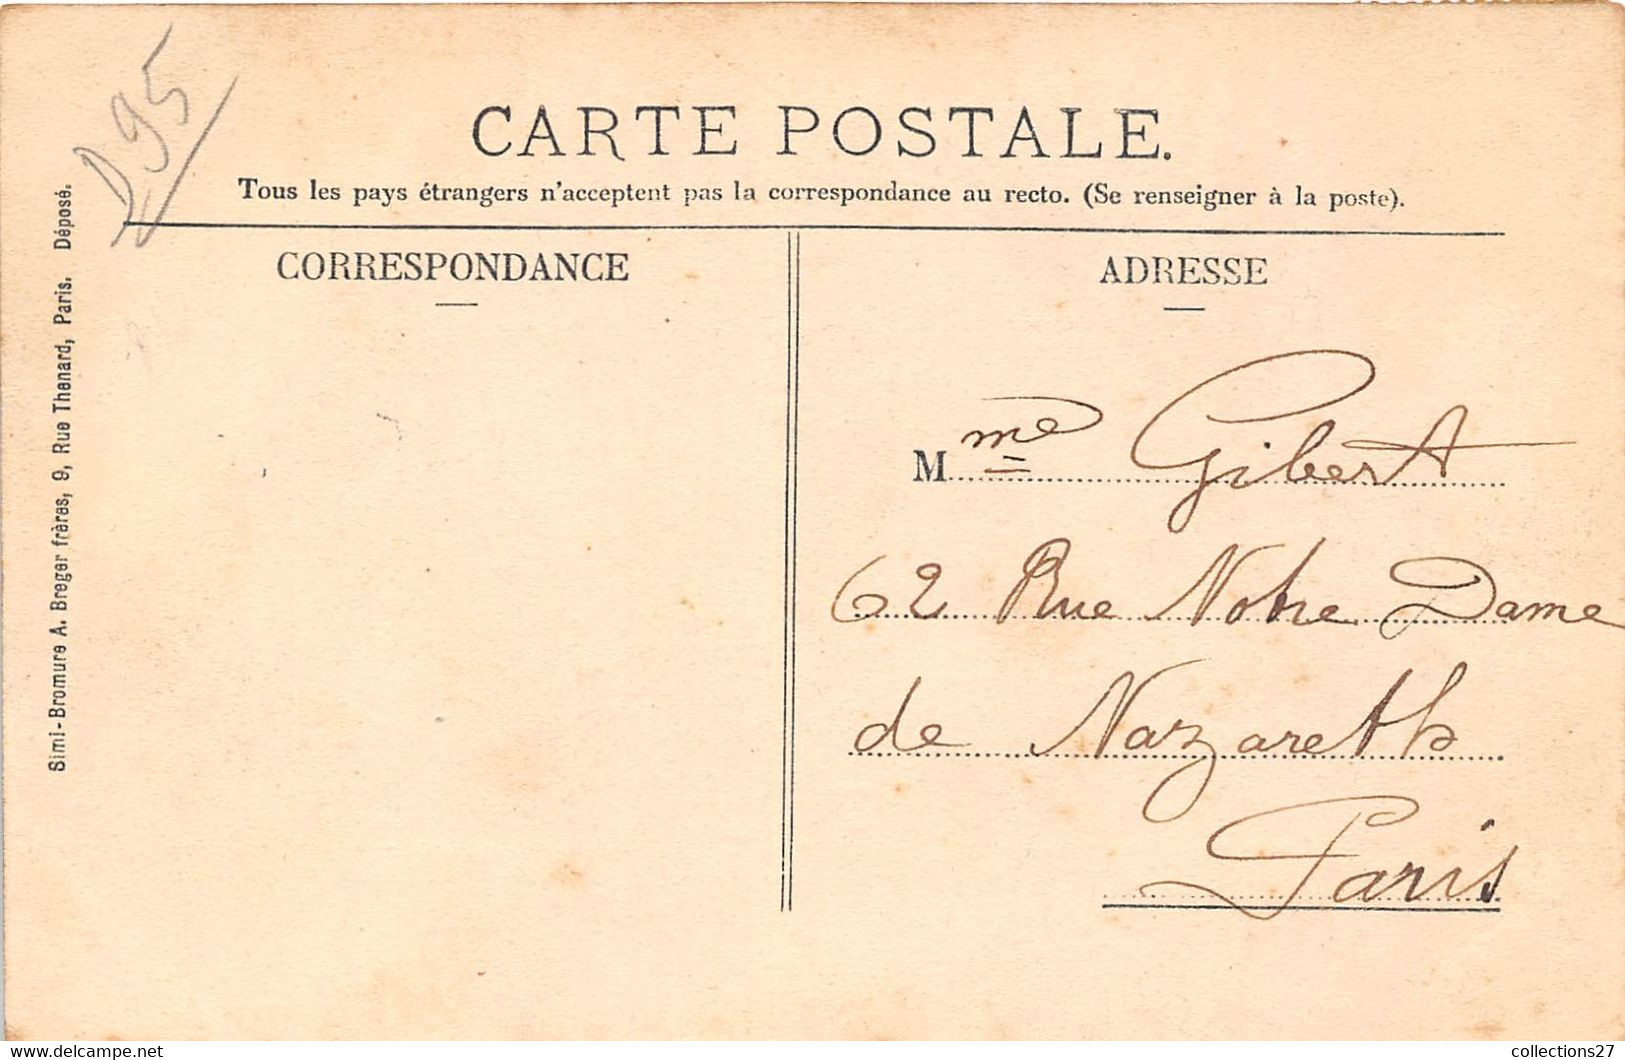 D95
CARTE POSTALE.
Tous les pays étrangers n'acceptent pas la correspondance au recto. (Se renseigner à la poste).
CORRESPONDANCE
ADRESSE
Mme Gibert
62 Rue Notre Dame
de Nazareth
Paris
Simi-Bromure A. Breger frères, 9, Rue Thenard, Paris. Déposé.
collections27